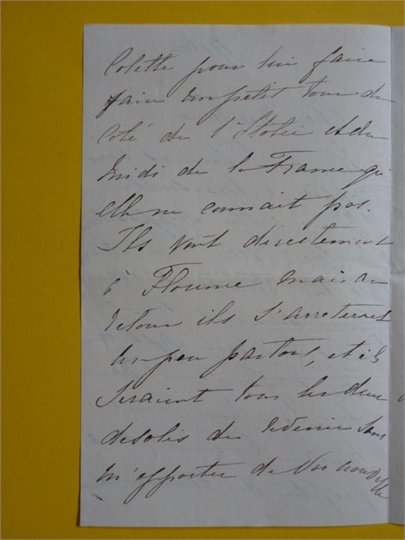 Colette pour lui faire
faire un petit tour du
côté de l'Italie et du
midi de la France qu'
elle ne connait pas.
Ils vont directement
à Florence mais au
retour ils s'arreteront
un peu partout, et ils
seraient tous les deux
desolés de revenir sans
m'apporter de vos nouvelles